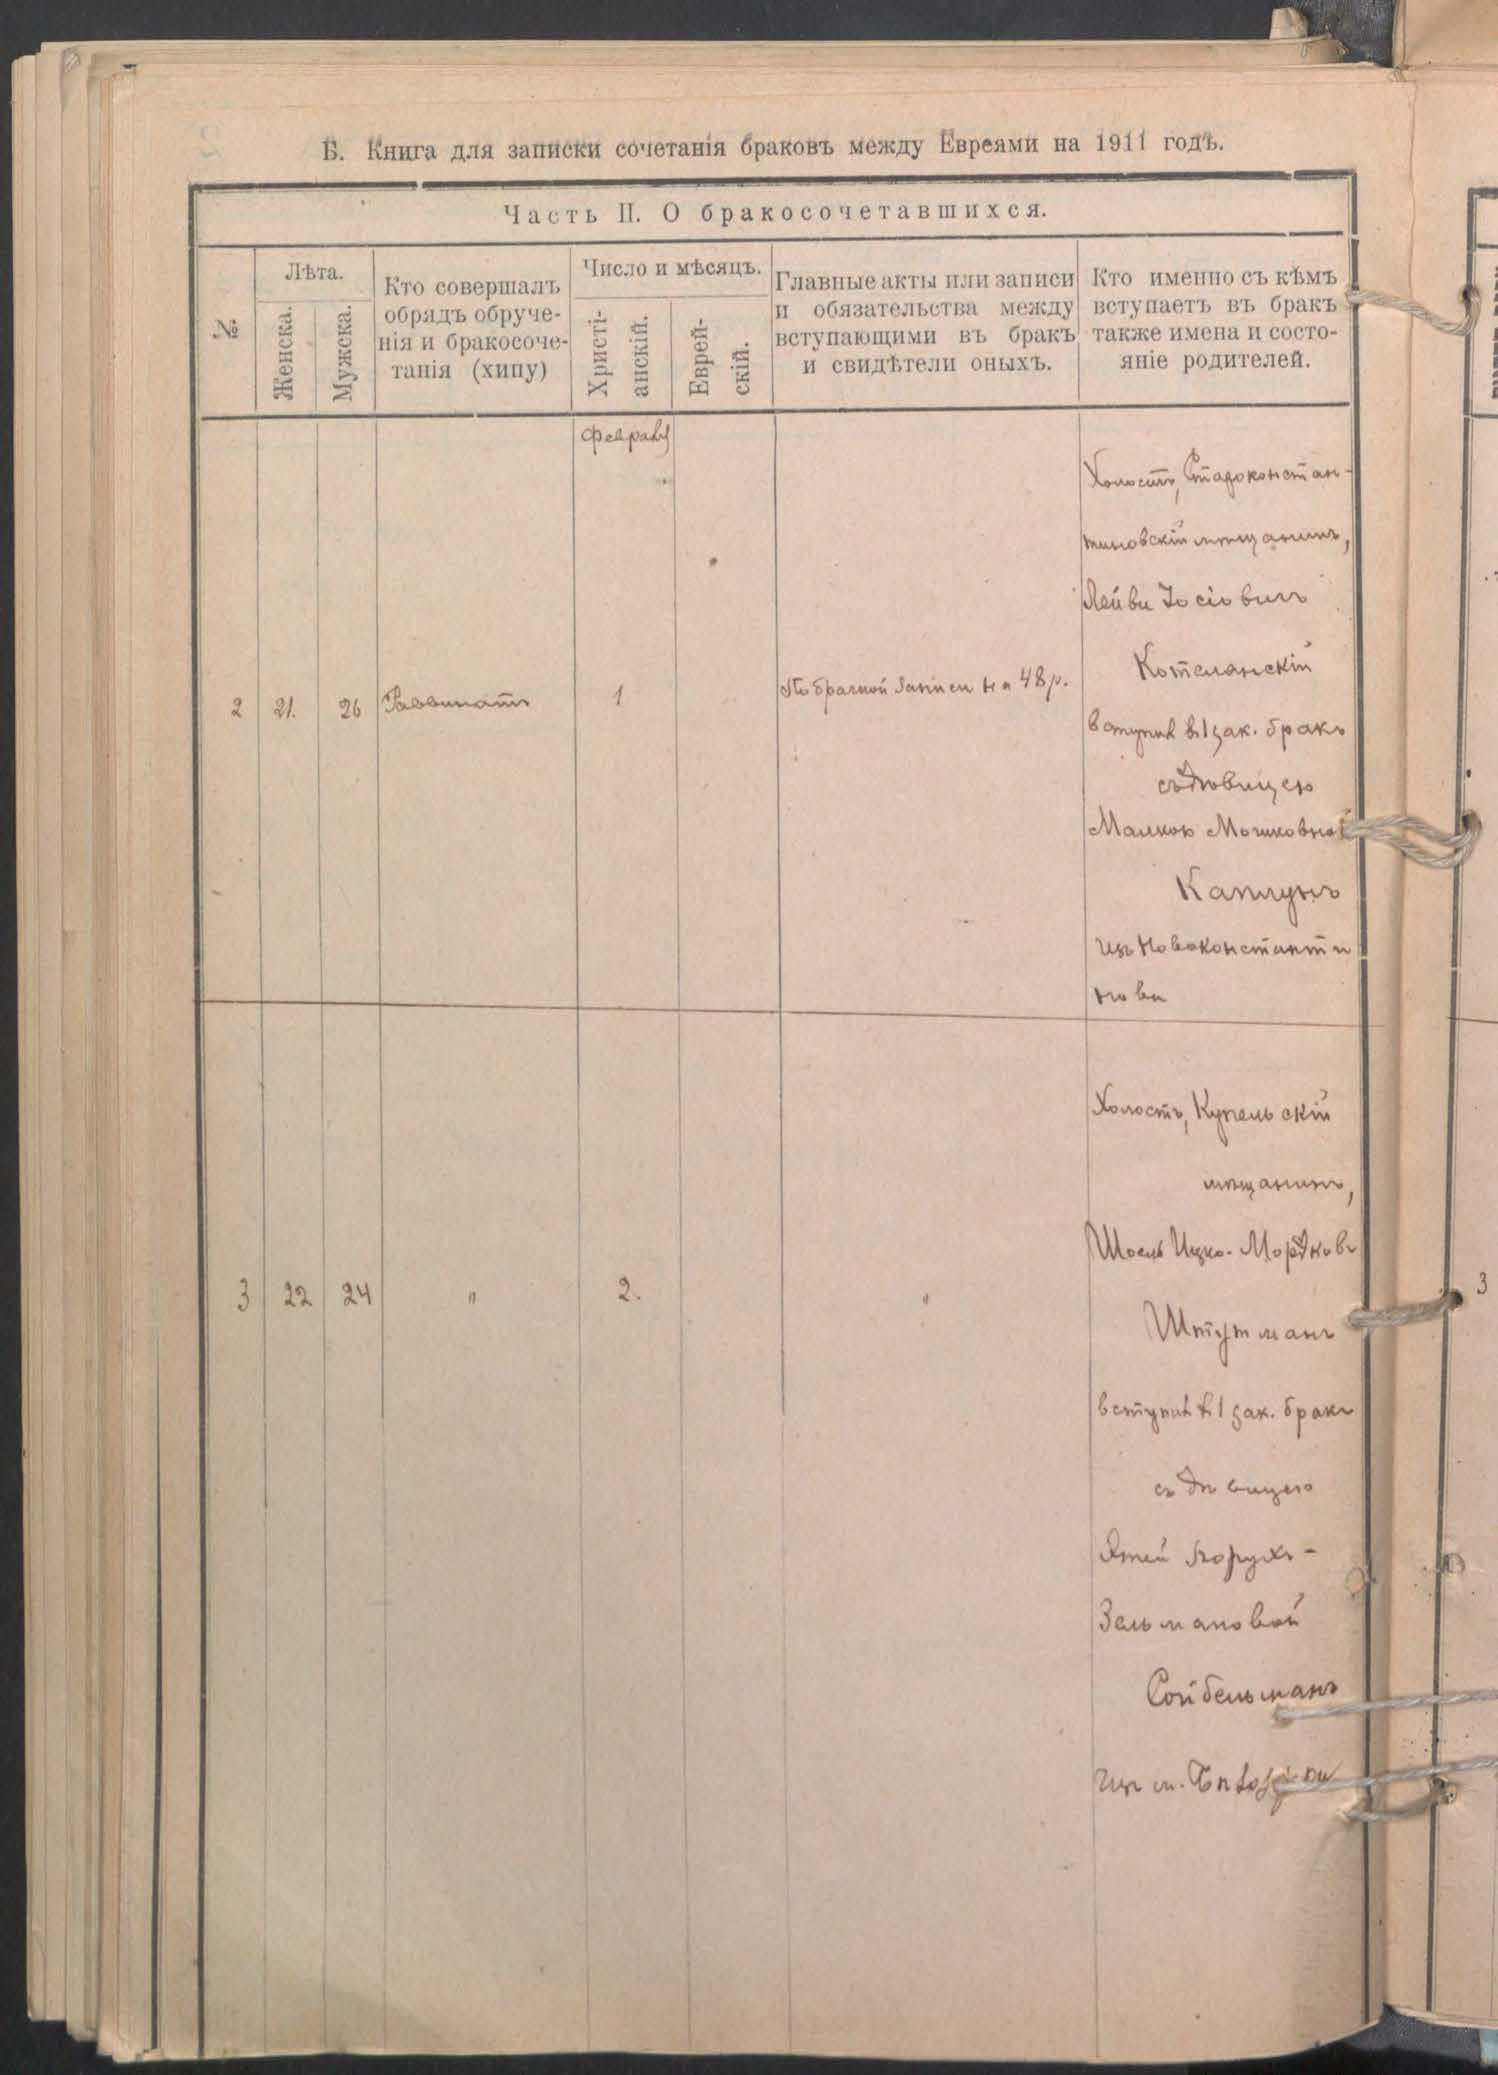 Б. Книга для записки сочетанія браковъ между Евреями на 1911 годъ.
Часть II. О бракосочетавшихся.
№
Лѣта.
Женска.
Мужска.
Кто совершалъ
обрядъ обруче-
нія и бракосоче-
танія (хипу)
Число и мѣсяцъ.
Христі-
анскій.
Еврей-
скій.
Главные акты или записи
и обязательства между
вступающими въ бракъ
и свидѣтели оныхъ.
Кто именно съ кѣмъ
вступаетъ въ бракъ
также имена и состо-
яніе родителей.
февраль
2
21.
26
Раввинатъ
1
По брачной записи на 48 р.
Холостъ, Староконстан-
тиновскій мѣщанинъ,
Лейба Іосіовичъ
Котелянскій
вступил в 1 зак. бракъ
съ дѣвицею
Малкою Мошковной
Каплунъ
изъ Новоконстанти
нова
3
22
24
"
2.
"
Холостъ, Купельскій
мѣщанинъ,
Шоель Ицко-Мордковъ
Штутманъ
вступил в 1 зак. бракъ
съ дѣвицею
Этей Борухъ-
Зельмановой
Сойбельманъ
изъ м.
3